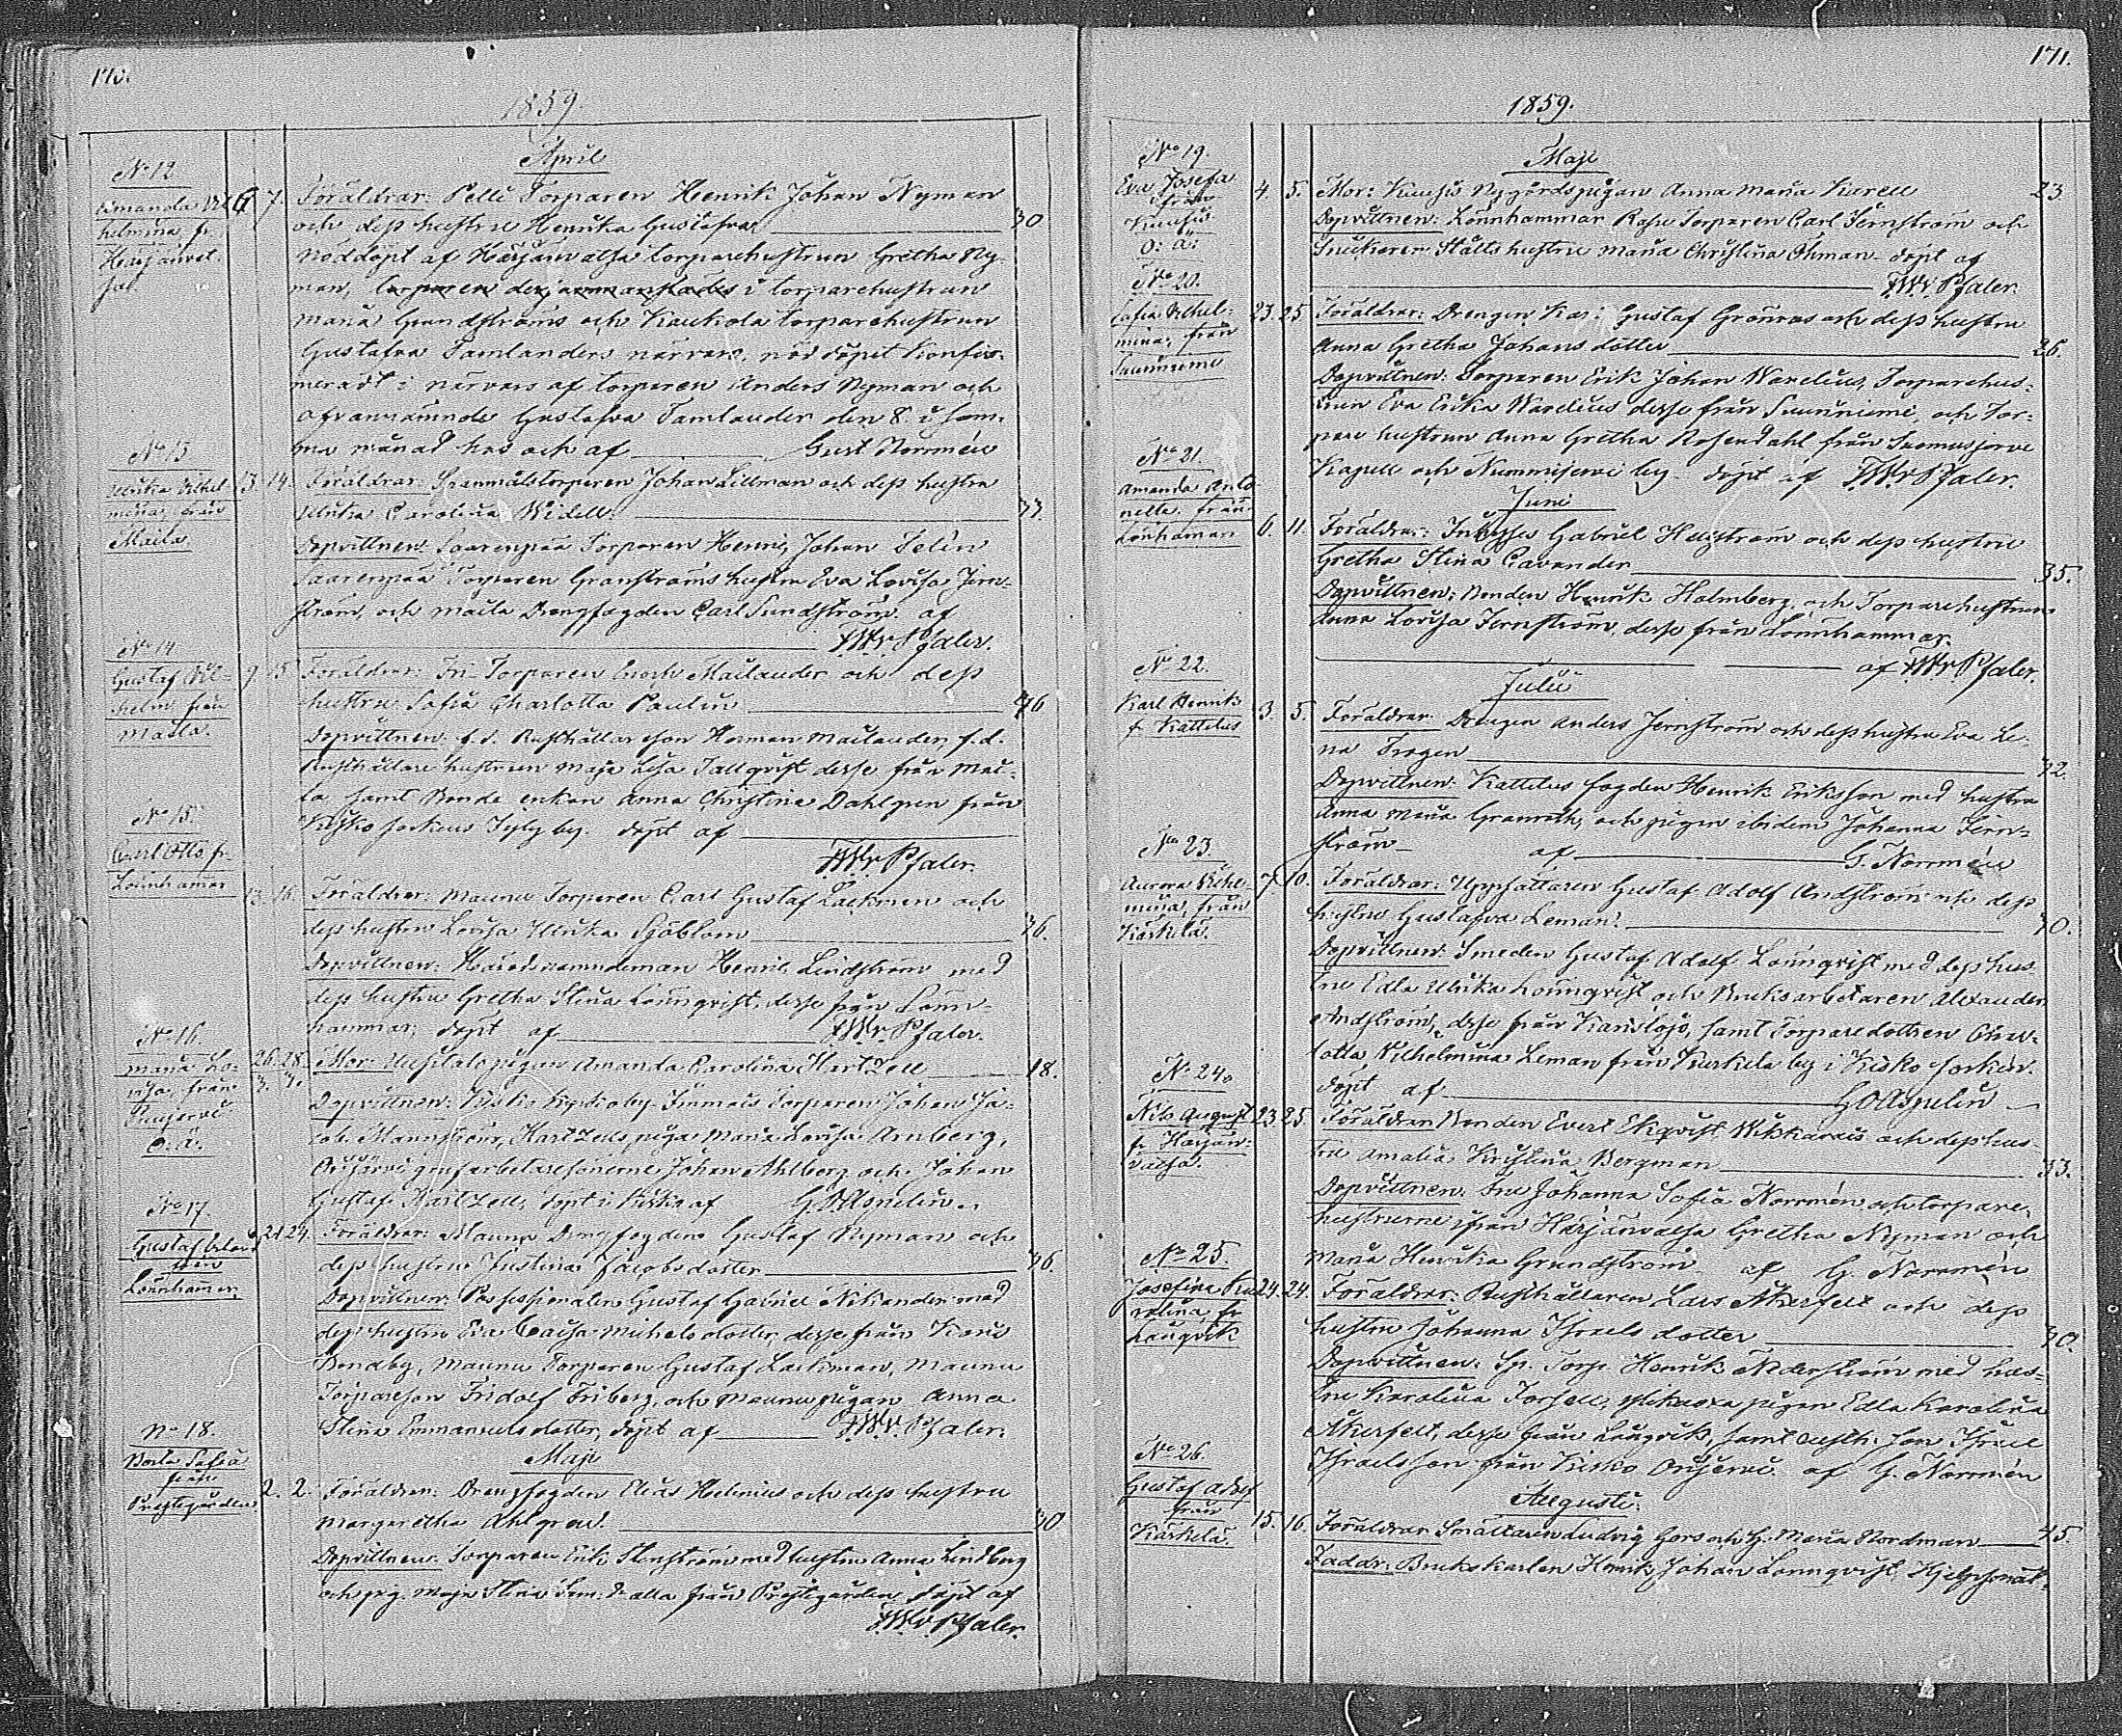 170.
1859.
April
No 12
Amanda Vil-
helmina, fr.
Harjanvat-
sa.
6. 7. Föräldrar: Pelli Torparen Henrik Johan Nyman
och dess hustru Henrika Gustafva 30
Nöddöpt af Harjanvatsa torparehustrun Gretha Ny-
man, i torparehustrun
Maria Grundströms och Kaukola torparehustrun
Gustafva Tamlanders närvaro, nöddopet konfir-
meradt i närvaro af torparen Anders Nyman och
ofvannämnde Gustafva Tamlander den 8 i sam-
ma månad has och af Gust Norrmén
No 13
Ulrika Vilhel-
mina, från
Maila
13. 14. Föräldrar: Torparen Johan Lillman och dess hustru
Ulrika Carolina Widell. 33.
Dopvittnen: Saarenpää Torparen Henric Johan Selin
Saarenpää Torparen Granströms hustru Eva Lovisa Jern-
ström, och Maila Drengfogden Carl Sundström. af
FW v. Pfaler.
No 14
Gustaf Vil-
helm från
Maila.
9 15 Föräldrar: Torparen Enoch Mailander och dess
hustru Sofia Charlotta Paulin 46
Dopvittnen: f.d. Rusthållarson Herman Mailander, f.d.
Rusthållare hustrun Maja Lisa Tallqvist desse från Mai-
la, samt Bonde enkan Anna Christina Dahlgren från
Kisko sockens by. döpt af
FW v. Pfaler.
No 15
Carl Otto, fr.
Lönnhamar
13. 16. Föräldrar: Maunu Torparen Carl Gustaf Lackman och
dess hustru Lovisa Ulrika Sjöblom 36.
Dopvittnen: Häradsnämndeman Henric Lindström med
dess hustru Gretha Stina Lönnqvist, desse från Lönn-
hammar, döpt af FW v. Pfaler.
No 16.
Maria Lo-
visa, från
O. Ä.
26. 28. Mor: pigan Amanda Carolina Hartzell 18.
3. 3.
Dopvittnen: Kisko Torparen Johan Ja-
cob Mannström, Hartzells piga Maria Lovisa Arnberg,
Orijärvi grufarbetaresönerne Johan Ahlberg och Johan
Gustaf Hartzell, döpt i Kisko af G. O. Aspelin.
No 17.
Gustaf
från
Lönnhamar.
21. 24. Föräldrar: Maunu Drengfogden Gustaf Nyman och
dess hustru Justina Jacobsdotter 36.
Dopvittnen: Possessionaten Gustaf Gabriel Nikander med
dess hustru Eva Caisa Michelsdotter, desse från Karis
Bondby, Maunu Torparen Gustaf Lackman, Maunu
Torpareson Fridolf Friberg, och Maunu pigan Anna
Stina Emmanuelsdotter, döpt af FW v. Pfaler.
Maji
No 18.
Berta Sofia
från
Prestgården
2. 2. Föräldrar: Drengfogden Elias Helenius och dess hustru
Margaretha Ahlgren. 30
Dopvittnen: Torparen Erik Stenström med hustru Anna Lindberg
och pig. Maja Stina alla från Prestgården döpt af
FW v. Pfaler.
171.
1859.
Maji
No 19.
Eva Josefa
från
O: Ä:
4. 5. Mor: Nygårdspigan Anna Maria Karell 23
Dopvittnen: Lönnhammar Torparen Carl Jernström och
Snickaren Ståhls hustru Maria Christina Öhman. döpt af
FW v. Pfaler.
No 20.
Sofia Vilhel-
mina, från
Suunniemi
23. 25 Föräldrar: Drengen Gustaf Grönroos och dess hustru
Anna Gretha Johansdotter 26.
Dopvittnen: Torparen Erik Johan Warelius, Torparehus-
trun Eva Erika Warelius desse från Suunniemi, och Tor-
pare hustrun Anna Gretha Rosendahl från Suomusjervi
Kapell och Nummijervi by. döpt af FW v. Pfaler.
Juni
No 21.
Amanda Anto-
netta från
Lönhamar
6. 11. Föräldrar: Inhyses Gabriel Hellström och dess hustru
Gretha Stina Cavander 35.
Dopvittnen: Bonden Henrik Holmberg och Torparehustrun
Anna Lovisa Jernström, desse från Lönnhammar.
af FW v. Pfaler.
Julii
No 22.
Karl Henrik
fr Kattelus
3. 5. Föräldrar: Drengen Anders Jernström och dess hustru Eva Le-
na Frogen 32.
Dopvittnen: Kattelus fogden Henrik Eriksson med hustru
Anna Maria Granroth, och pigan ibidem Johanna Jern-
ström af G. Norrmén
No 23.
Aurora Vilhel-
mina, från
Kärkelä.
7. 10. Föräldrar: Uppsättaren Gustaf Adolf Andström och dess
hustru Gustafva Leman. 30.
Dopvittnen: Smeden Gustaf Adolf Lönnqvist med dess hus
tru Edla Ulrika Lönnqvist och Bruksarbetaren Alexander
Andström, desse från Karislojo, samt Torparedottren Char-
lotta Vilhelmina Leman från Kurkela by i Kisko socken.
döpt af G O Aspelin
No 24.
Nils August
fr Harjan-
vatsa.
23. 25. Föräldrar: Bonden Evert Ekqvist och dess hus-
tru Amalia Kristina Bergman 33.
Dopvittnen: Fru Johanna Sofia Norrmén och torpare-
hustrurne ifrån Harjanvatsa Gretha Nyman och
Maria Henrika Grundström af G. Norrmén
No 25.
Josefina Ka
rolina, fr
Långvik
24. 24. Föräldrar: Rusthållaren Lars Åkerfelt och dess
hustru Johanna Israelsdotter 30.
Dopvittnen: Sp. Torp. Henrik Nederström med hus-
tru Karolina Forsell, pigan Edla Karolina
Åkerfelt, desse från Långvik, samt Rusth. son Israel
Israelsson från Kisko Orijervi. af G. Norrmén
Augusti.
No 26.
Gustaf Adolf
från
Kärkelä.
15. 16. Föräldrar: Smältaren Ludvig Gers och h. Maria Nordman 45.
Faddr: Brukskarlen Henrik Johan Lönnqvist, Hjelpsmäl-